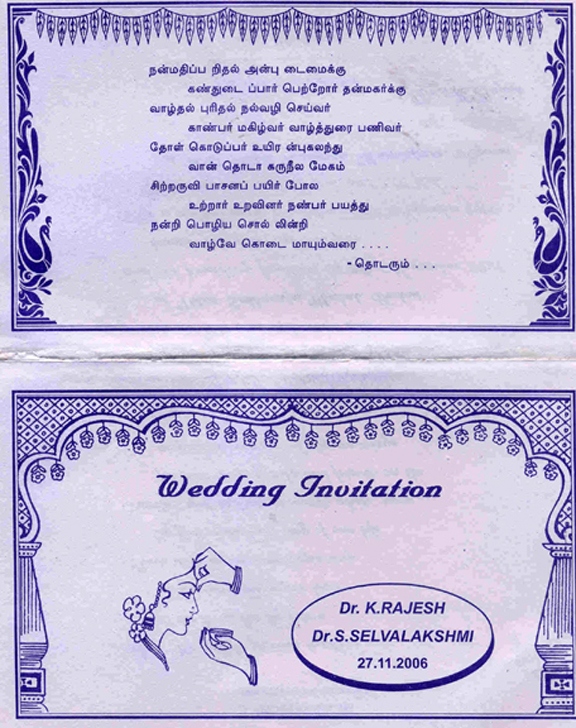 நன்மதிப்ப றிதல் அன்பு டைமைக்கு
கண்துடை ப்பார் பெற்றோர் தன்மகர்க்கு
வாழ்தல் புரிதல் நல்வழி செய்வர்
காண்பர் மகிழ்வர் வாழ்த்துரை பணிவர்
தோள் கொடுப்பர் உயிர ன்புகலந்து
வான் தொடா கருநீல மேகம்
சிற்றருவி பாசனப் பயிர் போல
உற்றார் உறவினர் நண்பர் பயத்து
நன்றி பொழிய சொல் லின்றி
வாழ்வே கொடை மாயும்வரை ....
- தொடரும் ...
Wedding Invitation
Dr. K.RAJESH
Dr.S.SELVALAKSHMI
27.11.2006